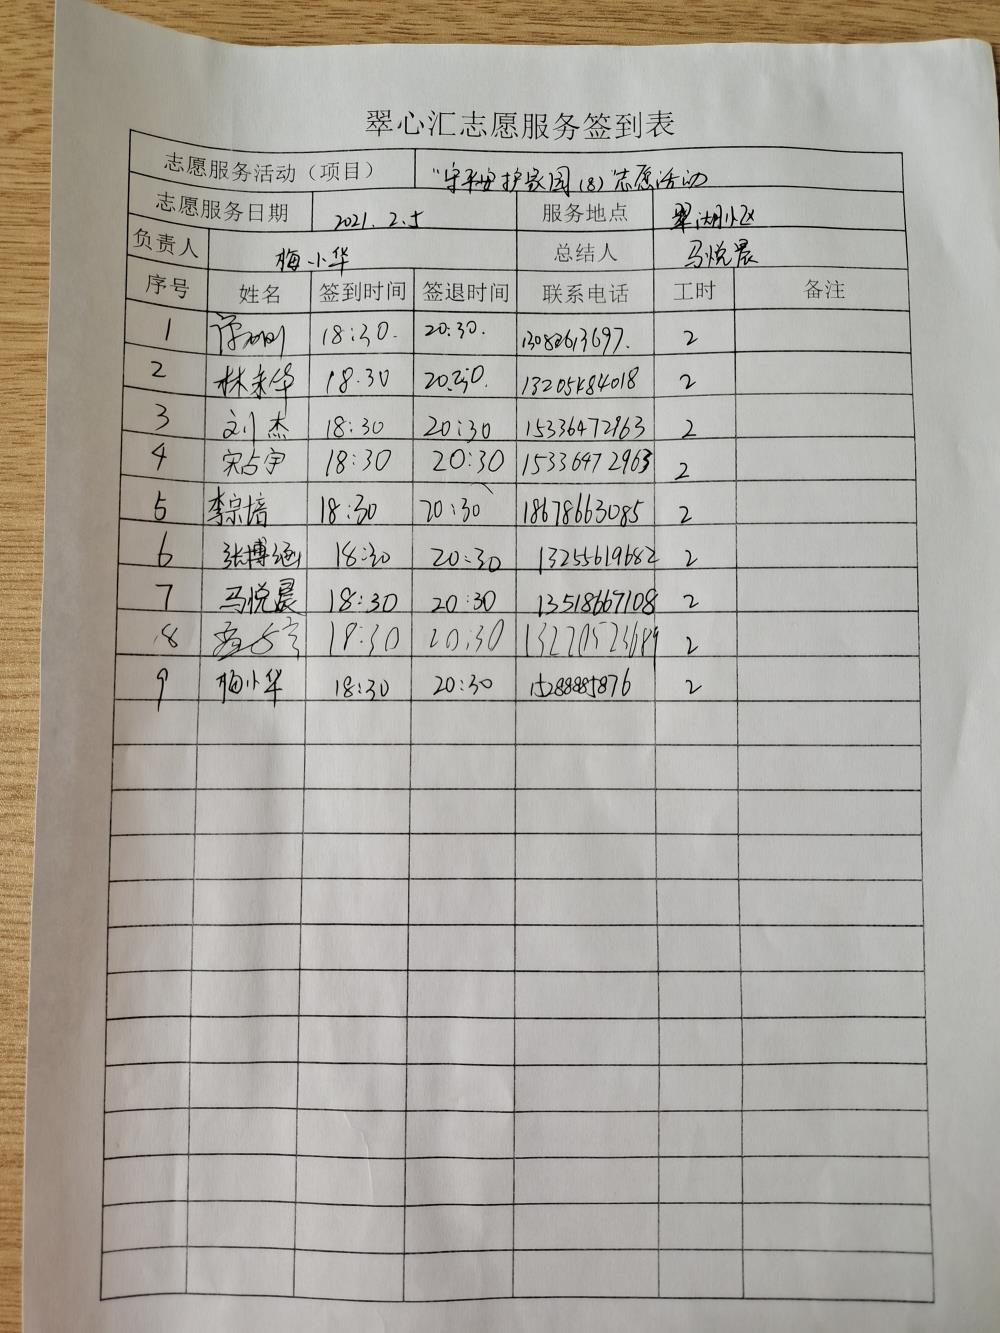 翠心汇志愿服务签到表
志愿服务活动（项目） “守平安护家园（8）”志愿活动
志愿服务日期 2021.2.5 服务地点 翠湖小区
负责人 梅小华 总结人 马悦晨
序号 姓名 签到时间 签退时间 联系电话 工时 备注
1 18:30. 20:30. 2
2 林来华 18:30 20:30. 2
3 刘杰 18:30 20:30 15336472963 2
4 宋占宇 18:30 20:30 15336472963 2
5 李宗培 18:30 20:30 18678663085 2
6 张博涵 18:30 20:30 13255619682 2
7 马悦晨 18:30 20:30 13518667108 2
8 18:30 20:30 13270523689 2
9 梅小华 18:30 20:30 15288885876 2